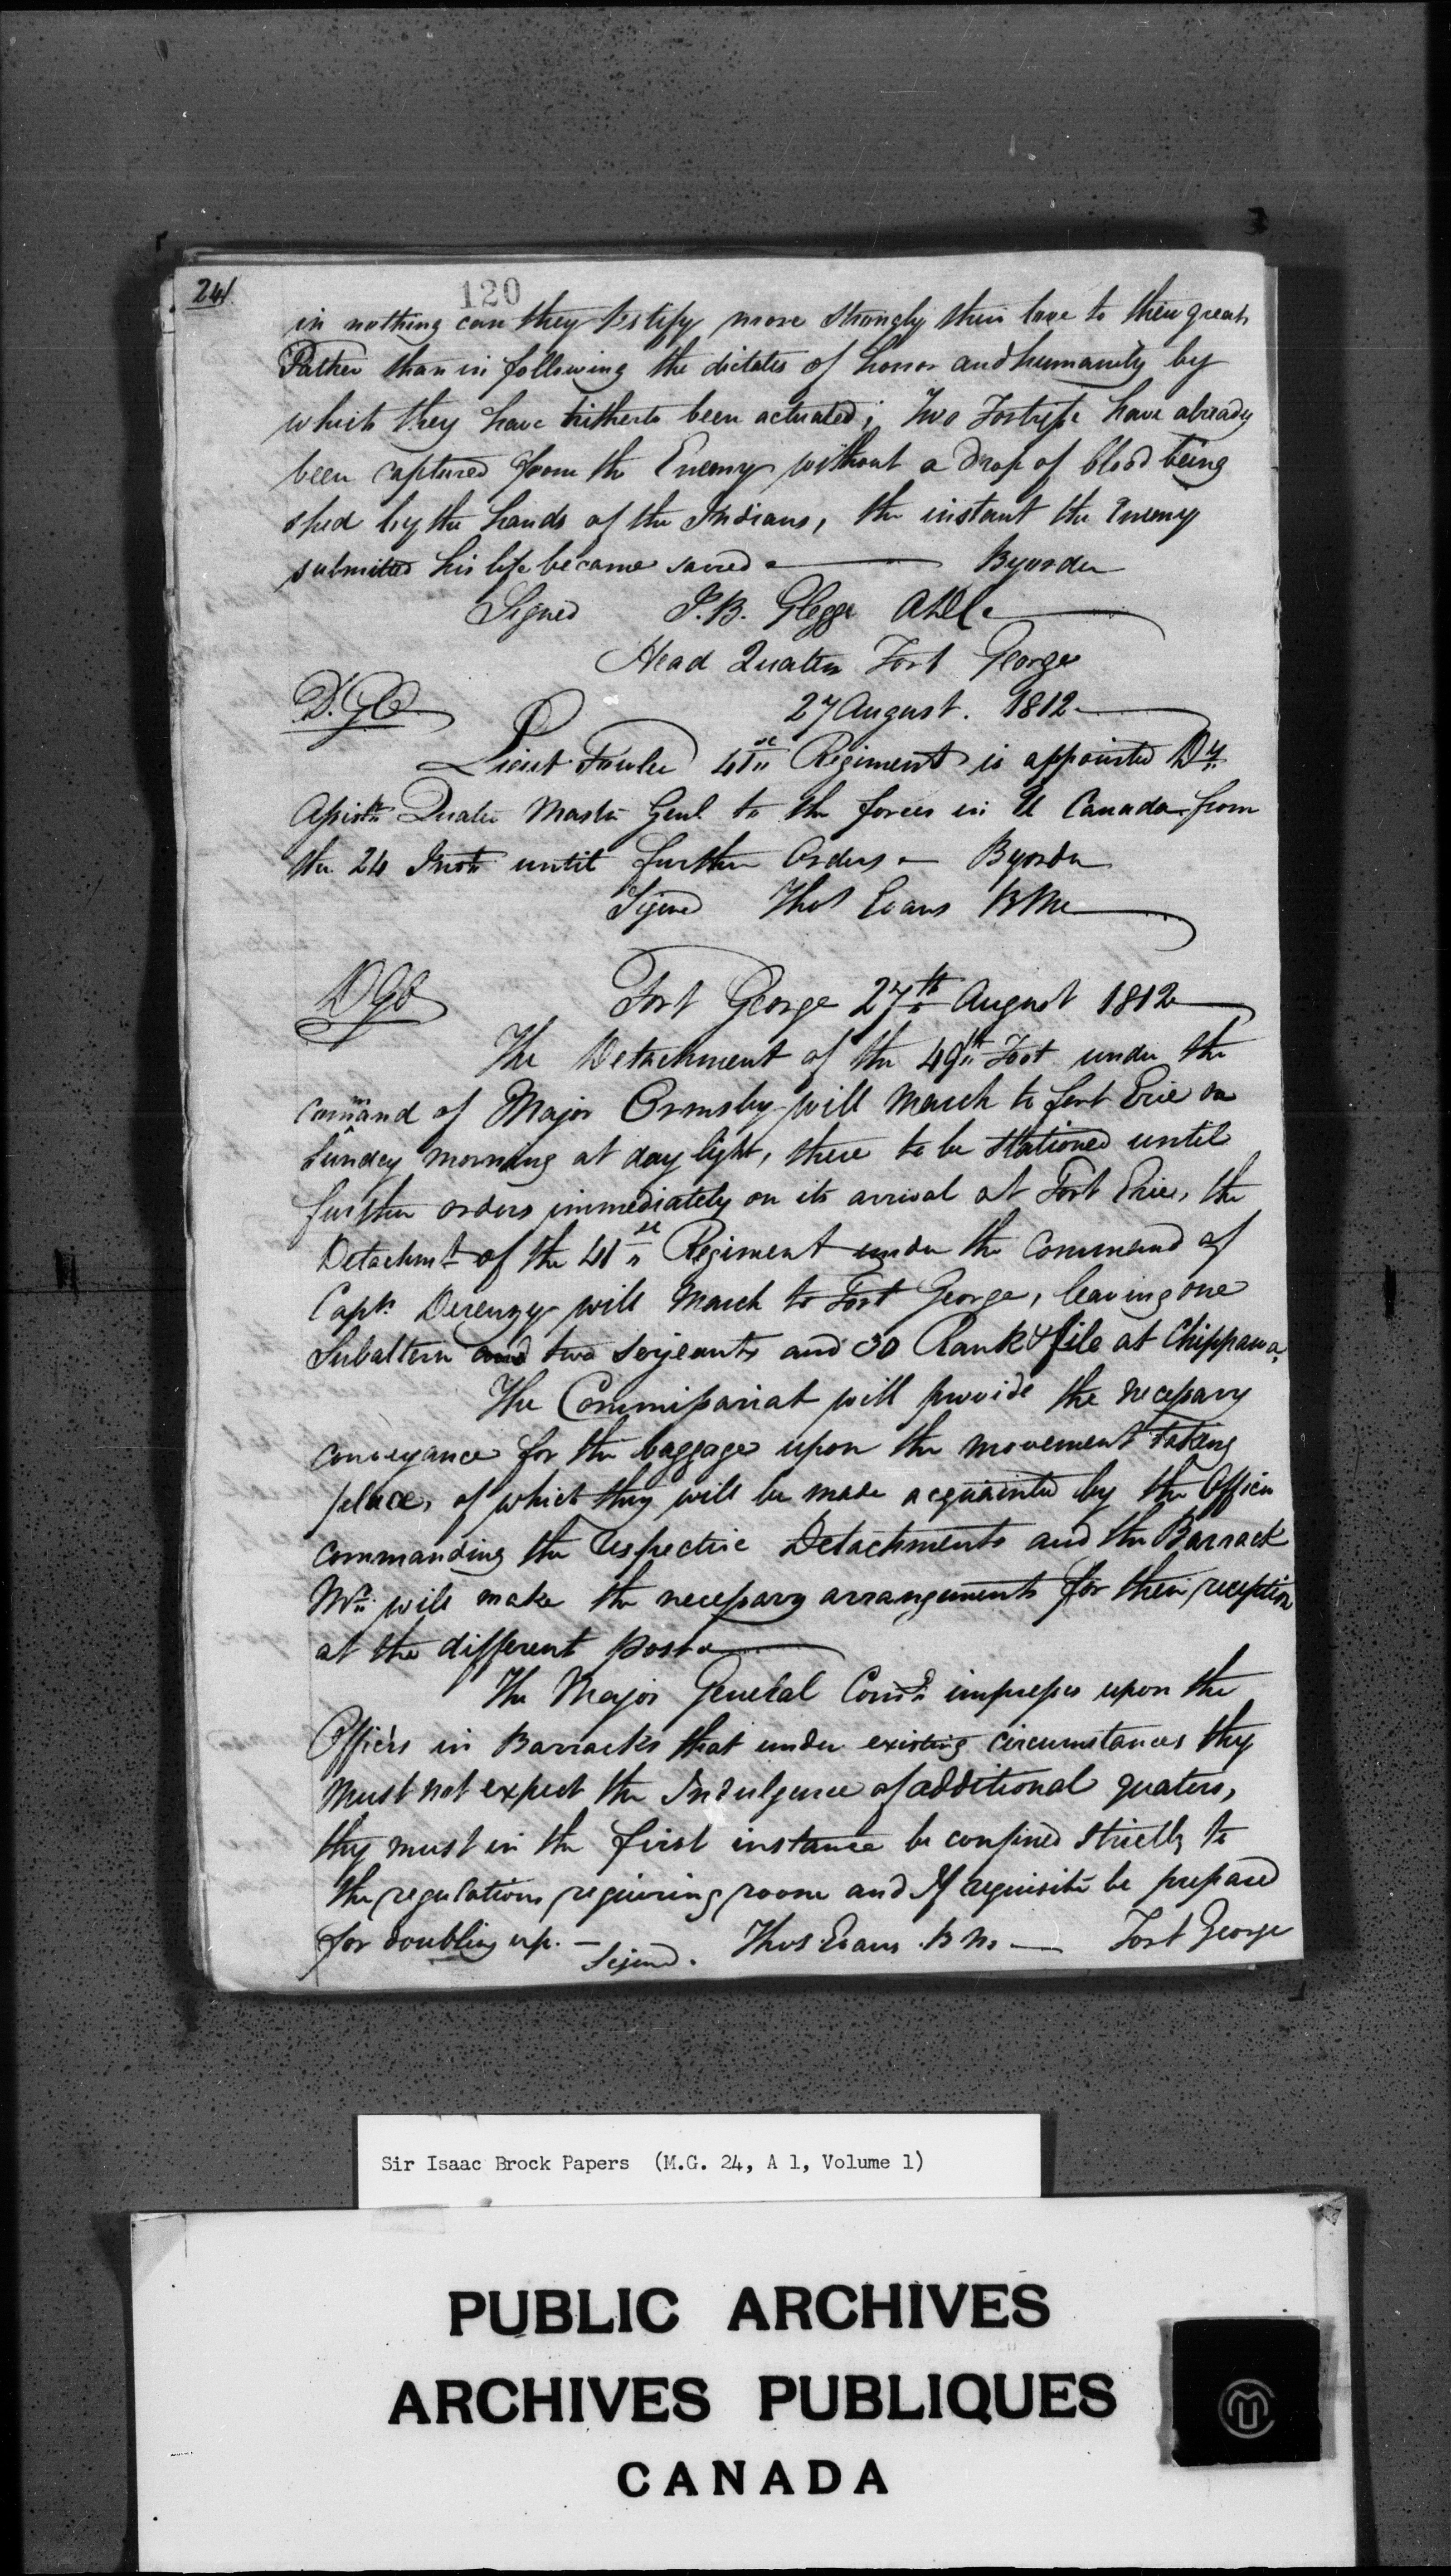 24.
120
in nothing can they testify more strongly their love to their great
Father than in following the dictates of honor and humanity by
which they have hitherto been actuated; Two Fortresses have already
been captured from the Enemy without a drop of blood being
shed by the hands of the Indians, the instant the Enemy
submitted his life became sacred — By order
Signed J.B. Glegg ADC
Head Quaters Fort George
D.G.O. 27 August. 1812
Lieut. Fowler 41st Regiment is appointed Dy
Assistt Quater Master Genl to the forces in U Canada from
the 24 Inst until further Orders — By order
Signed Thos Evans BM
DGO Fort George 27th August 1812
The Detachment of the 49th Foot under the
command of Major Ormsby will march to Fort Erie on
Sunday morning at day light, there to be stationed until
further orders immediately on its arrival at Fort Erie, the
Detachmt of the 41st Regiment under the Command of
Capt. Derenzy will march to Fort George, leaving one
Subaltern and two serjeants and 30 Rank & file at Chippawa.
The Commissariat will provide the necessary
conveyance for the baggage upon the movement taking
place, of which they will be made acquainted by the Officer
commanding the respective Detachments and the Barrack
Mr. will make the necessary arrangements for their reception
at the different posts
The Major General Comd. impresses upon the
Officers in Barracks that under existing circumstances they
must not expect the Indulgence of additional quaters,
they must in the first instance be confined strictly to
the regulations requiring room and If requisite be prepared
for doubling up. — Signed. Thos Evans B M. — Fort George
Sir Isaac Brock Papers (M.G. 24, A 1, Volume 1)
PUBLIC ARCHIVES
ARCHIVES PUBLIQUES
CANADA